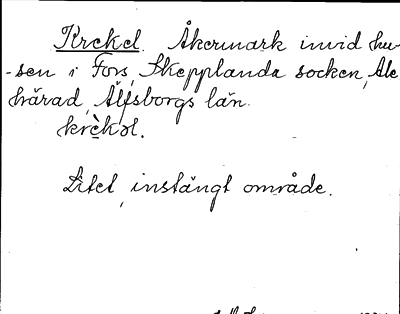 Krekel. Åkermark invid hu-
-sen i Fors, Skepplanda socken, Ale
härad, Älfsborgs län.
krὲkəl.
Litet, instängt område.